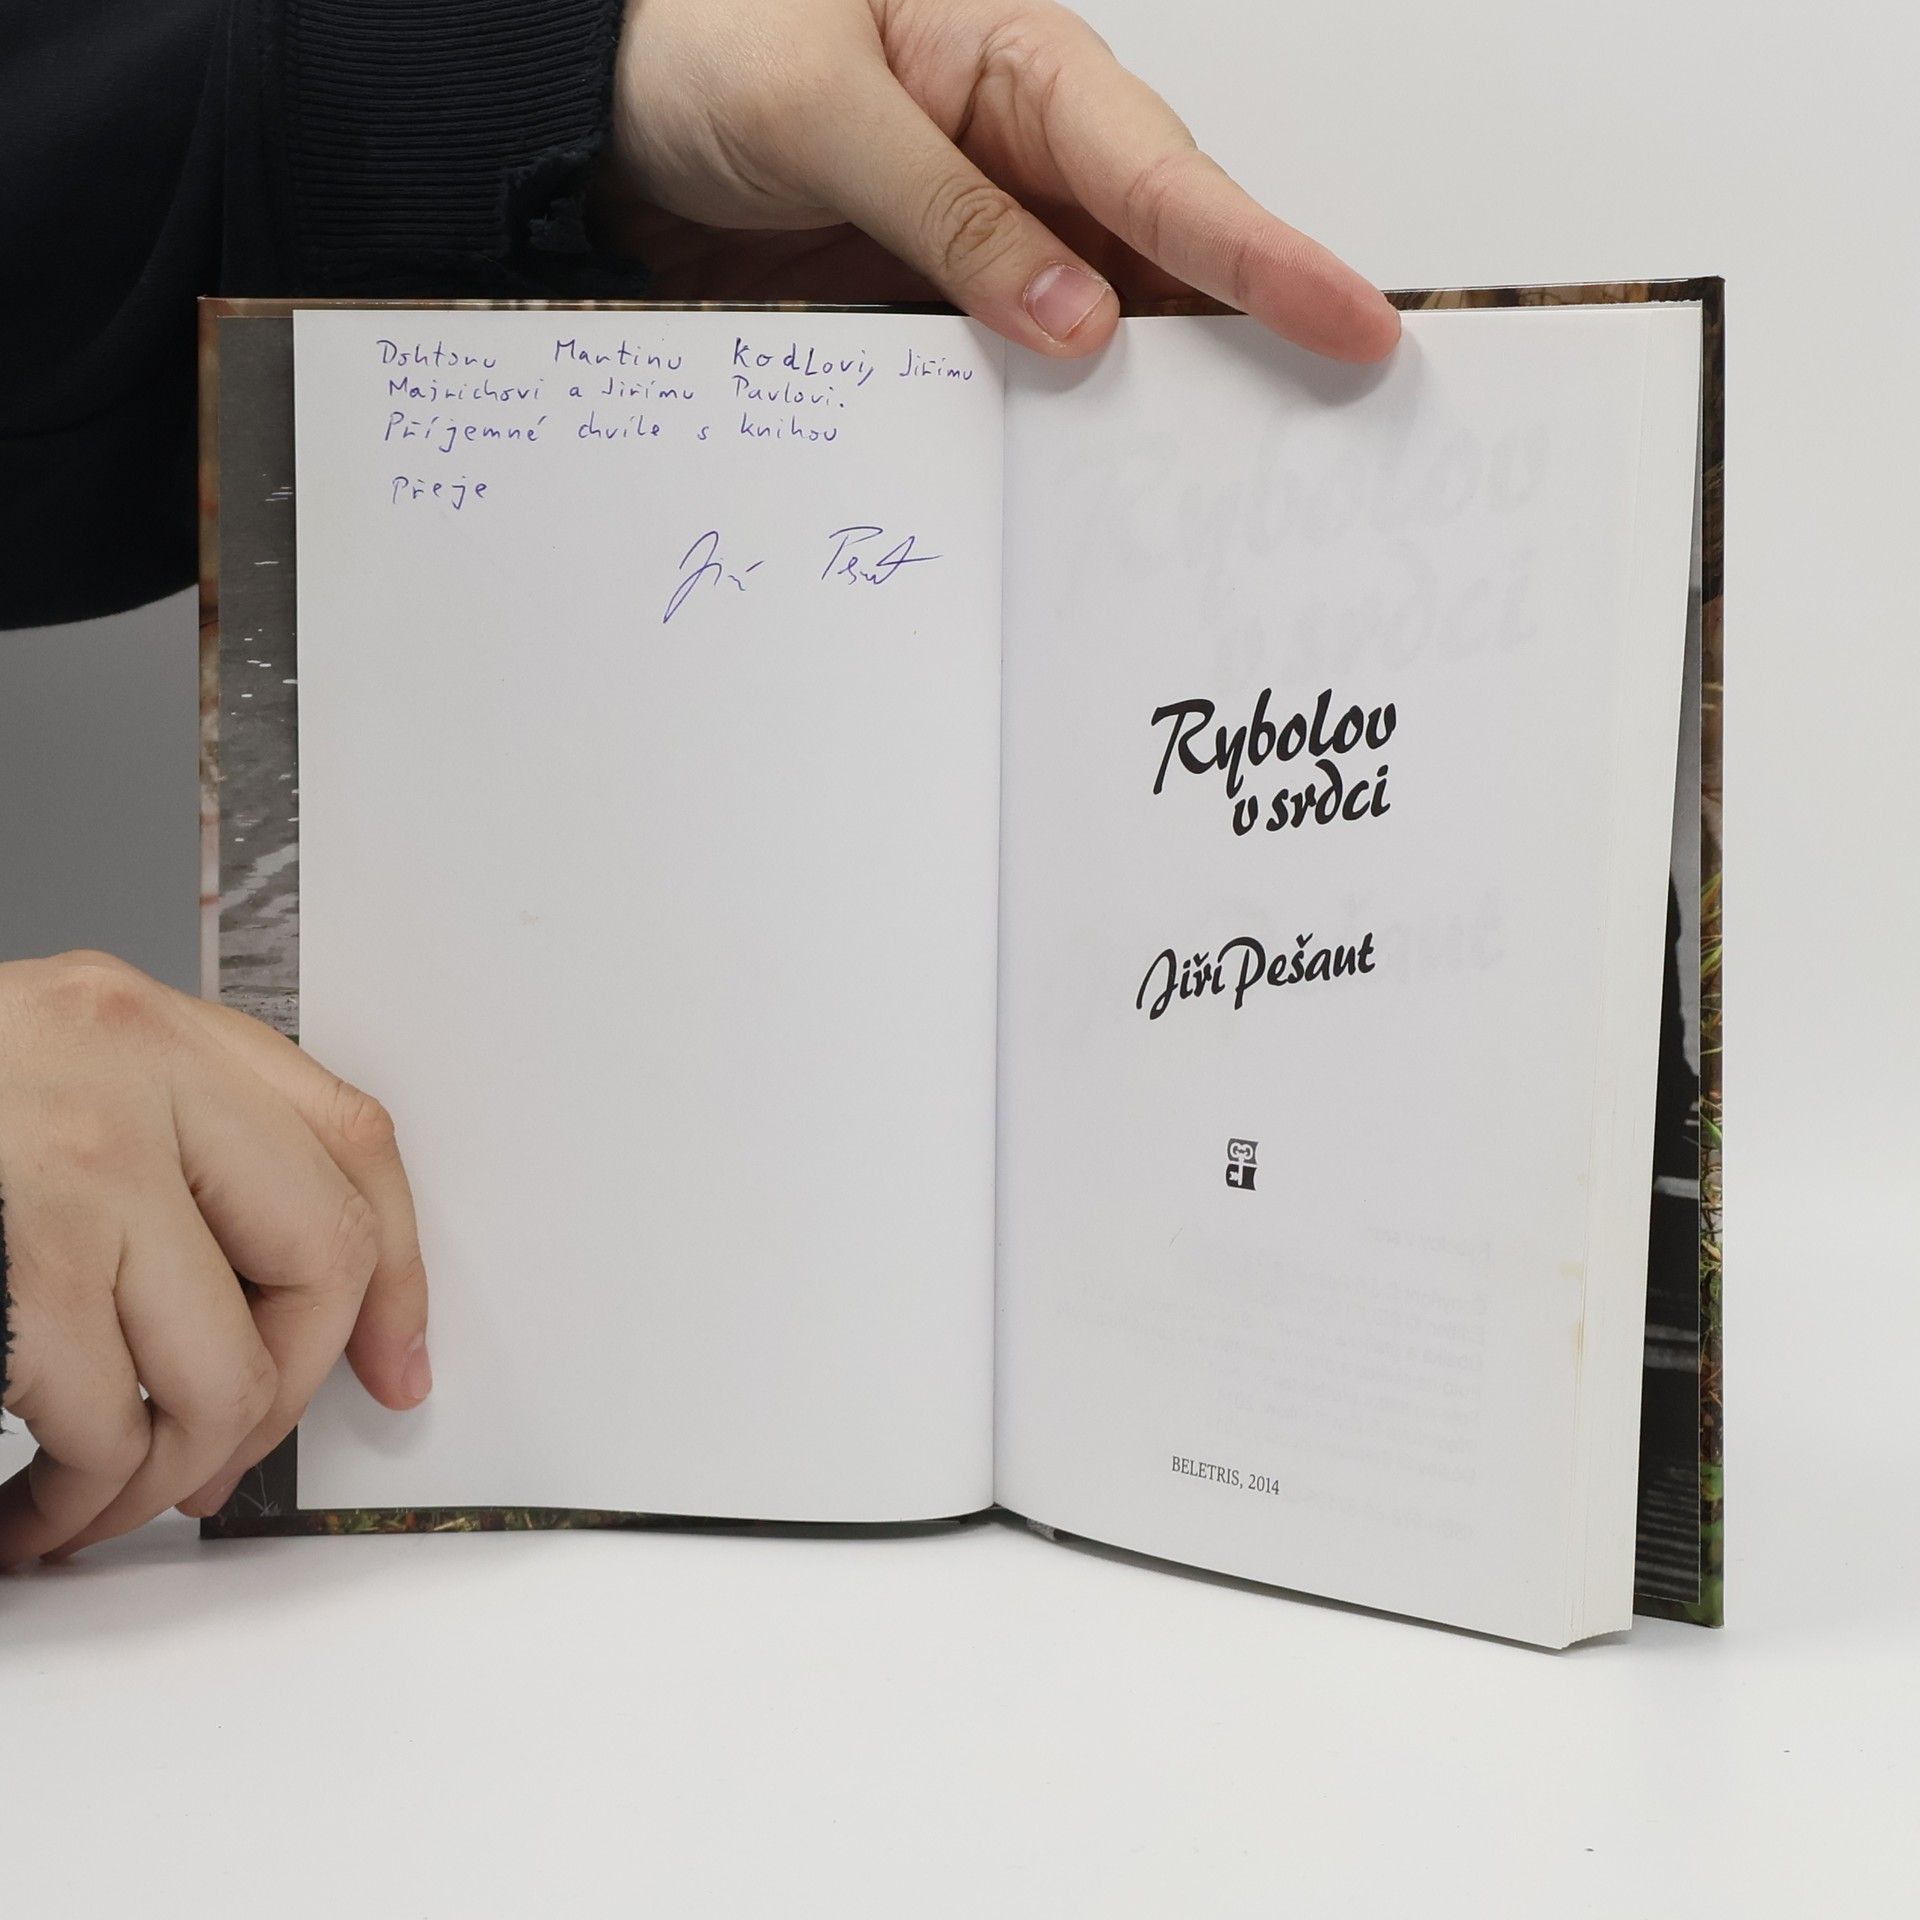 Doktoru Martinu Kodlovi, Jiřímu
Majrichovi a Jiřímu Pavlovi.
Příjemné chvíle s knihou
Přeje
Jiří Pešaut
Rybolov
v srdci
Jiří Pešaut
BELETRIS, 2014